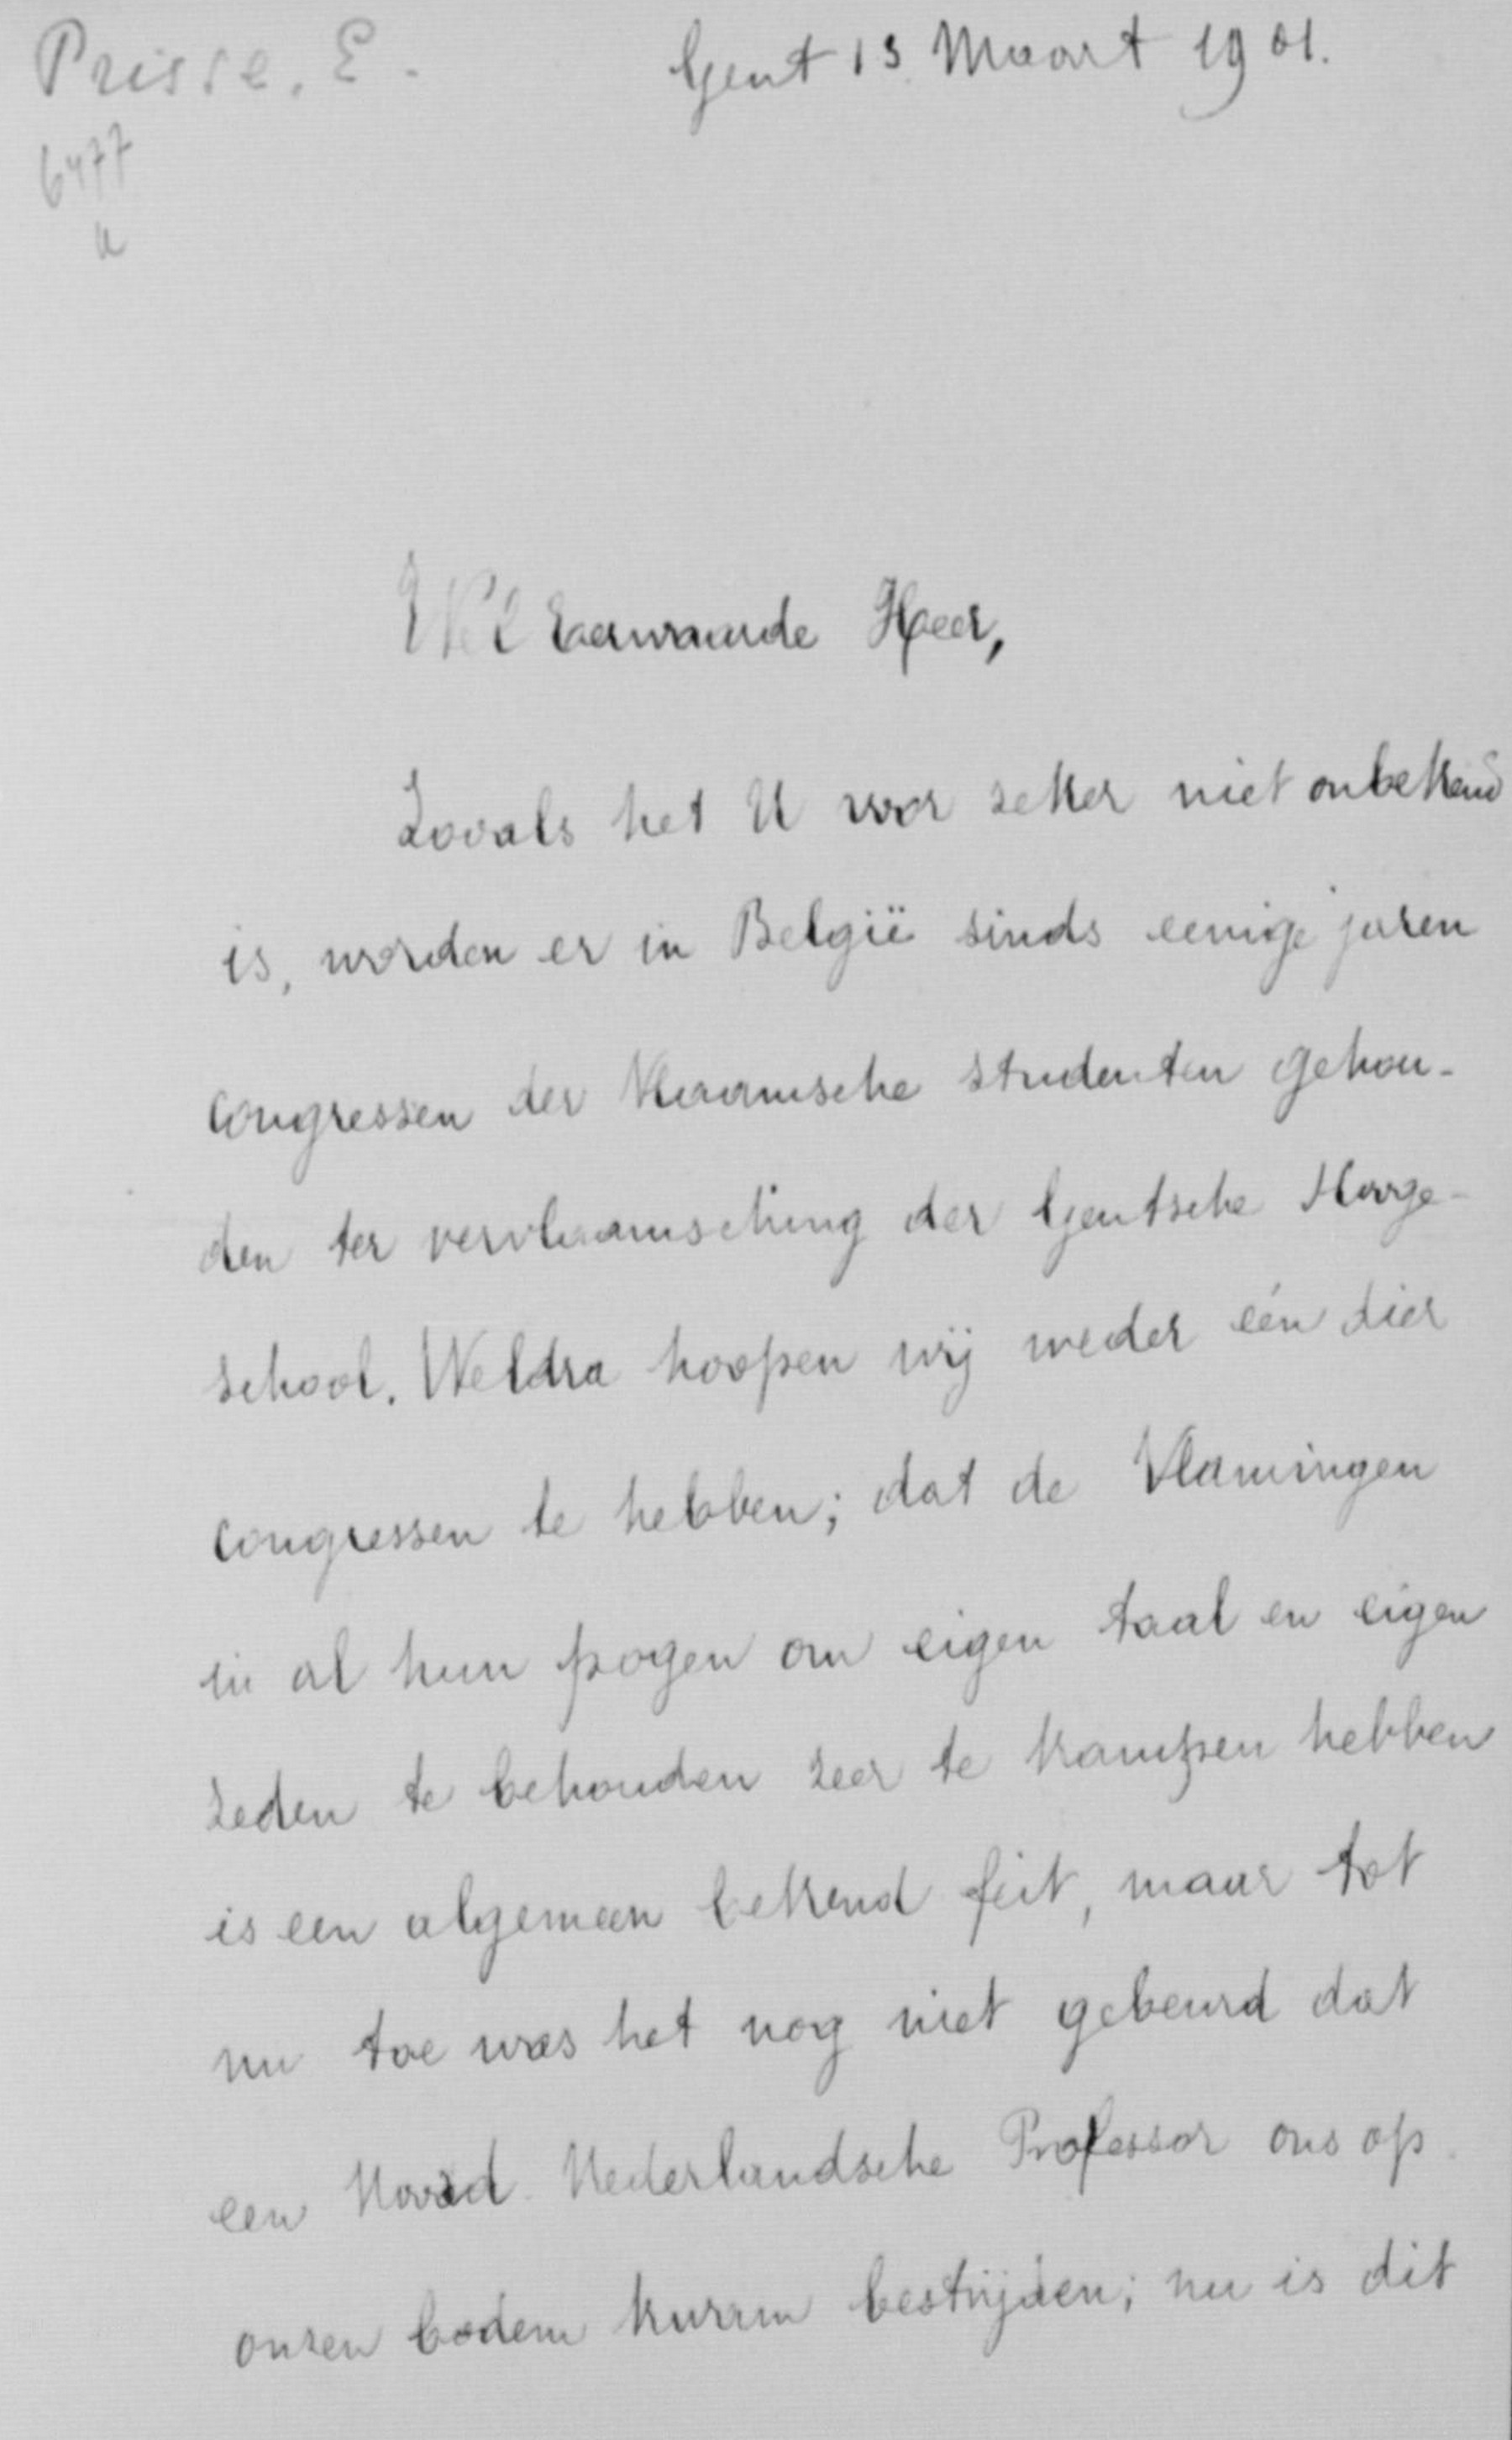 Prisse, E.
Gent 13 Maart 1901.
6477
a
Wel Eerwaarde Heer,
Zooals het U voor zeker niet onbekend
is, worden er in België sinds eenige jaren
congressen der Vlaamsche studenten gehou-
den ter vervlaamsching der Gentsche Hooge-
school. Weldra hoopen wij weder één dier
congressen te hebben; dat de Vlamingen
in al hun pogen om eigen taal en eigen
zeden te behouden zeer te kampen hebben
is een algemeen bekend feit, maar tot
nu toe was het nog niet gebeurd dat
een Noord Nederlandsche Professor ons op
onzen bodem kwam bestrijden; nu is dit